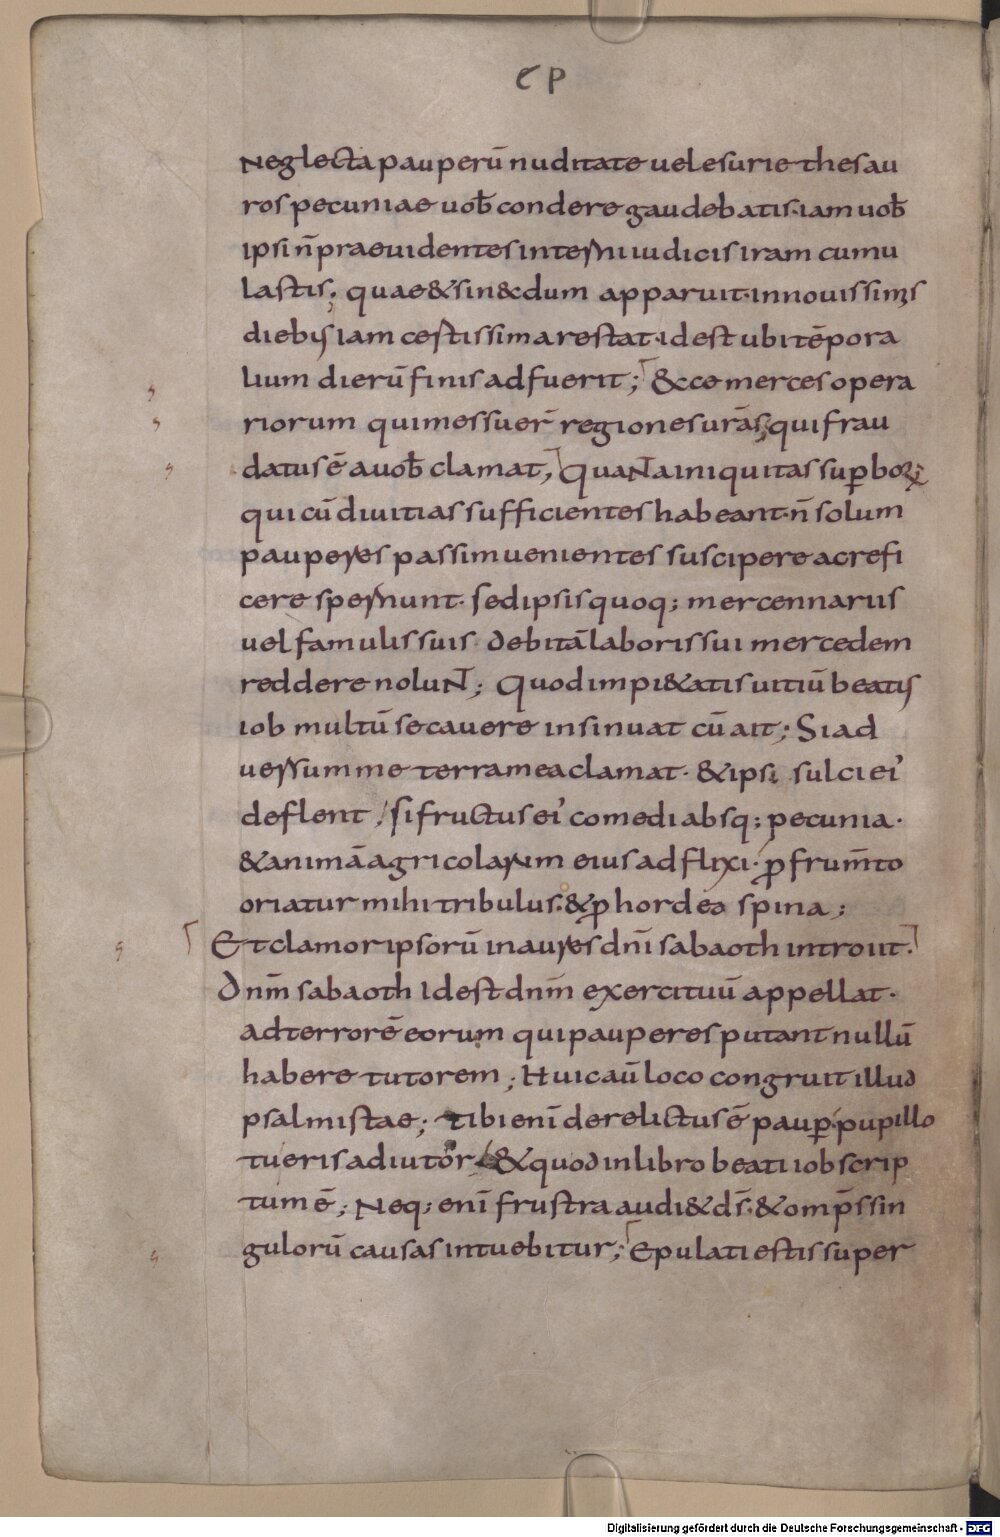 EP
Neglecta pauperū nuditate uel esurie thesau
ros pecuniae uob̄ condere gaudebatis· iam uob̄
ipsi n̄ praeuidentes interni iudicis iram cumu
lastis; quae & si n&dum apparuit· in nouissimis
dieb; iam certissima restat· id est ubi tēpora
lium dierū finis adfuerit; & cce merces opera
riorum qui messuer̄ regiones urās, qui frau
datus ē a uob̄ clamat; QuaNta iniquitas superborum
qui cū diuitias sufficientes habeant· n̄ solum
pauperes passim uenientes suscipere ac refi
cere spernunt· sed ipsis quoq; mercennariis
uel famulis suis debitā laboris sui mercedem
reddere noluNt; Quod impi&atis uitiū beatus
iob multū se cauere insinuat cū ait; Si ad
uersum me terra mea clamat· & ipsi sulci ei'
deflent, si fructus ei' comedi absq; pecunia·
& animā agricolarum eius adflixi· ꝓ frum̄to
oriatur mihi tribulus· & ꝓ hordeo spina;
Et clamor ipsorū in aures dn̄i sabaoth introiit·
Dn̄m sabaoth id est dn̄m exercituū appellat·
ad terrorē eorum qui pauperes putant nullū
habere tutorem; Huic aū loco congruit illud
psalmistae; tibi enī derelictus ē paup̱· pupillo
tu eris adiutor· & quod in libro beati iob scrip
tum ē; Neq; enī frustra audi& d̄s· & omp̄s sin
gulorū causas intuebitur; Epulati estis super
Digitalisierung gefördert durch die Deutsche Forschungsgemeinschaft - DFG